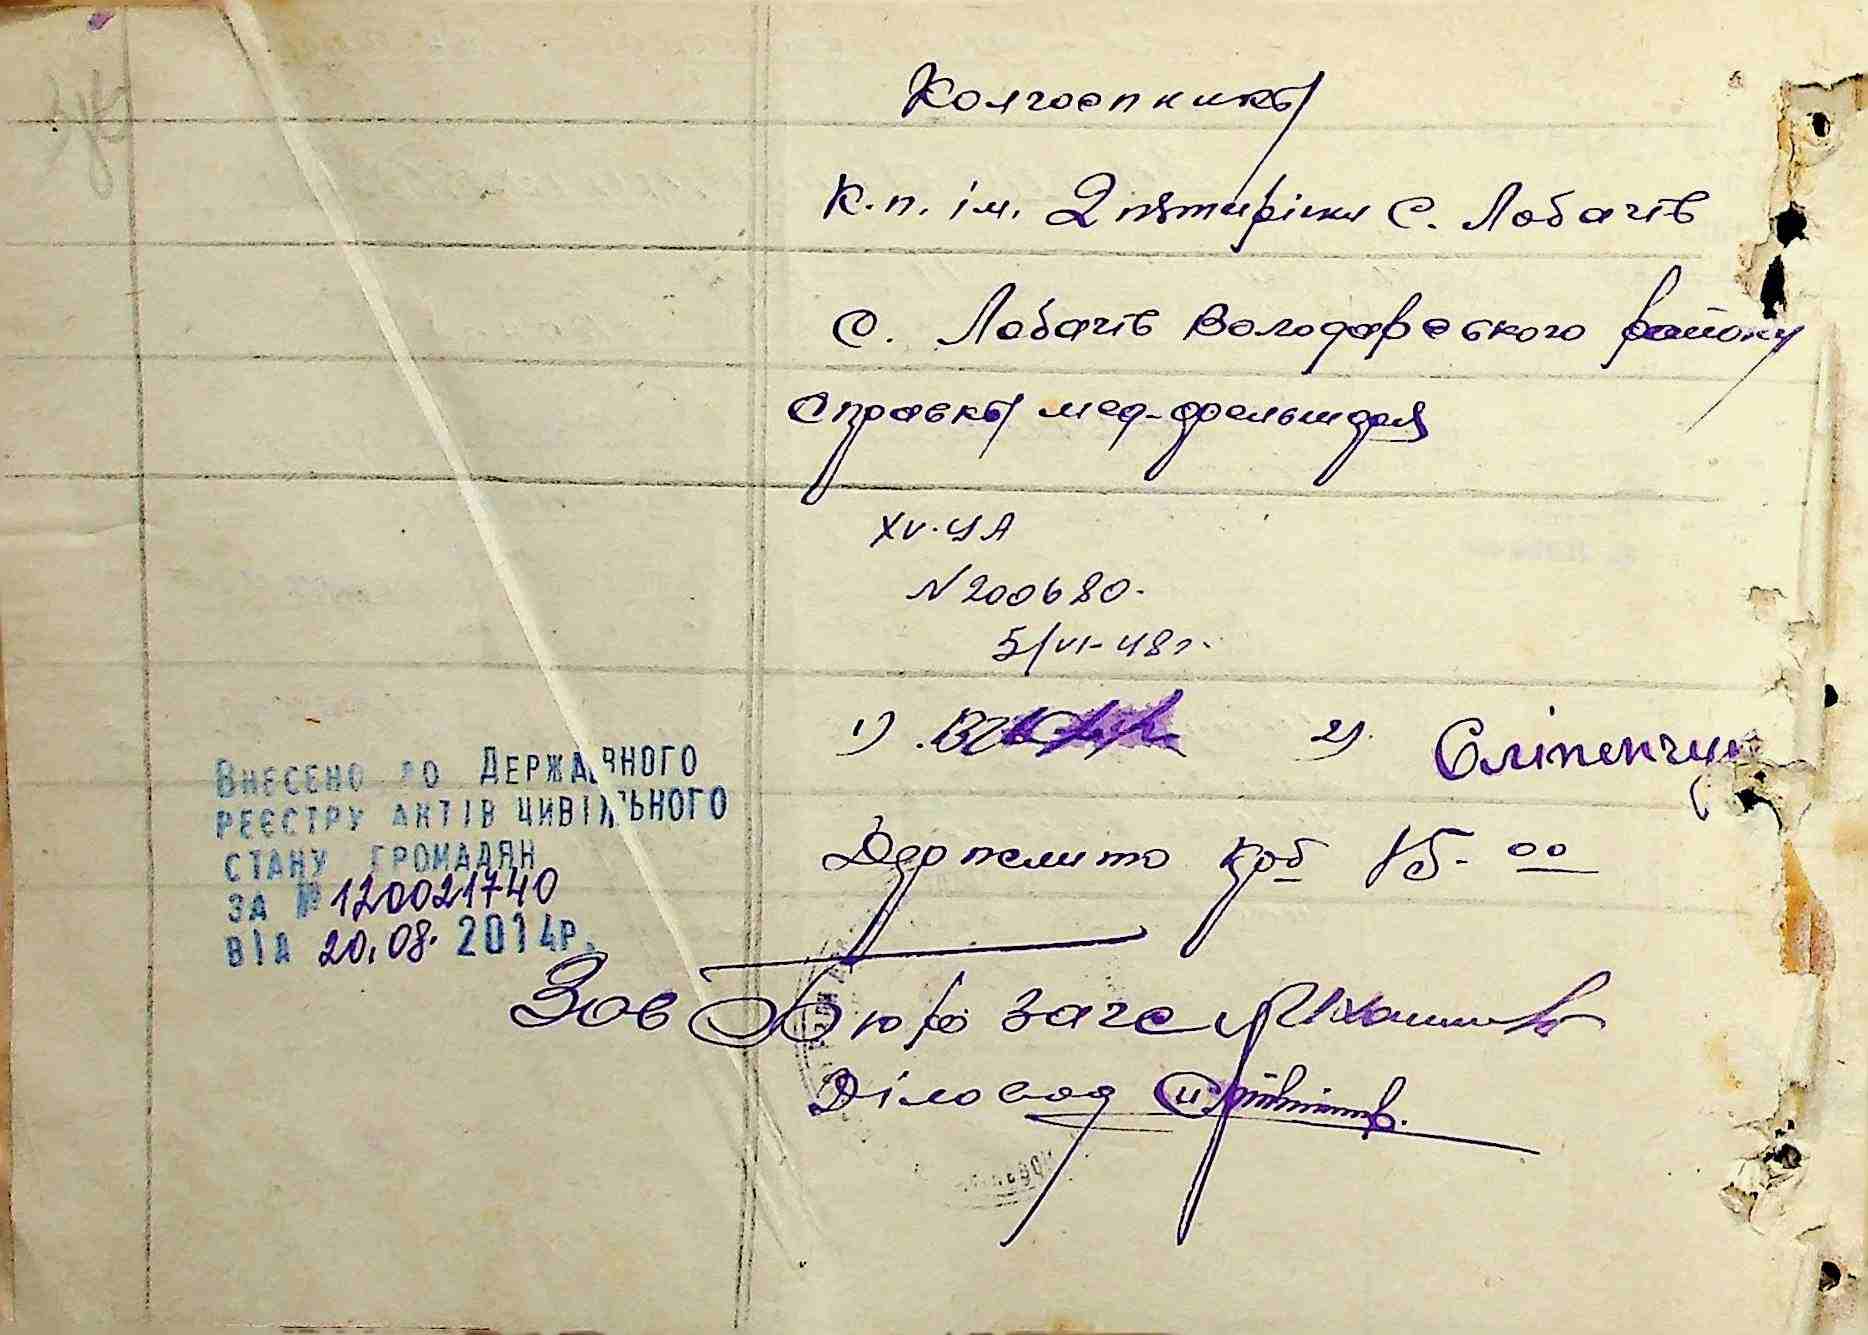 Колгоспникы
к.п. ім. 2 пятирічки с. Лобачів
с. Лобачів Володарського району
Справкы мед-фельшаря
XV-ЦА
N 200680.
5/VI-48 г.
1) 2) Сліпенчук
Держмито крб 15-00
Зав Бюро загс
Діловод
ВНЕСЕНО ДО ДЕРЖАВНОГО
РЕЄСТРУ АКТІВ ЦИВІЛЬНОГО
СТАНУ ГРОМАДЯН
ЗА № 120021740
ВІД 20.08. 2014р.